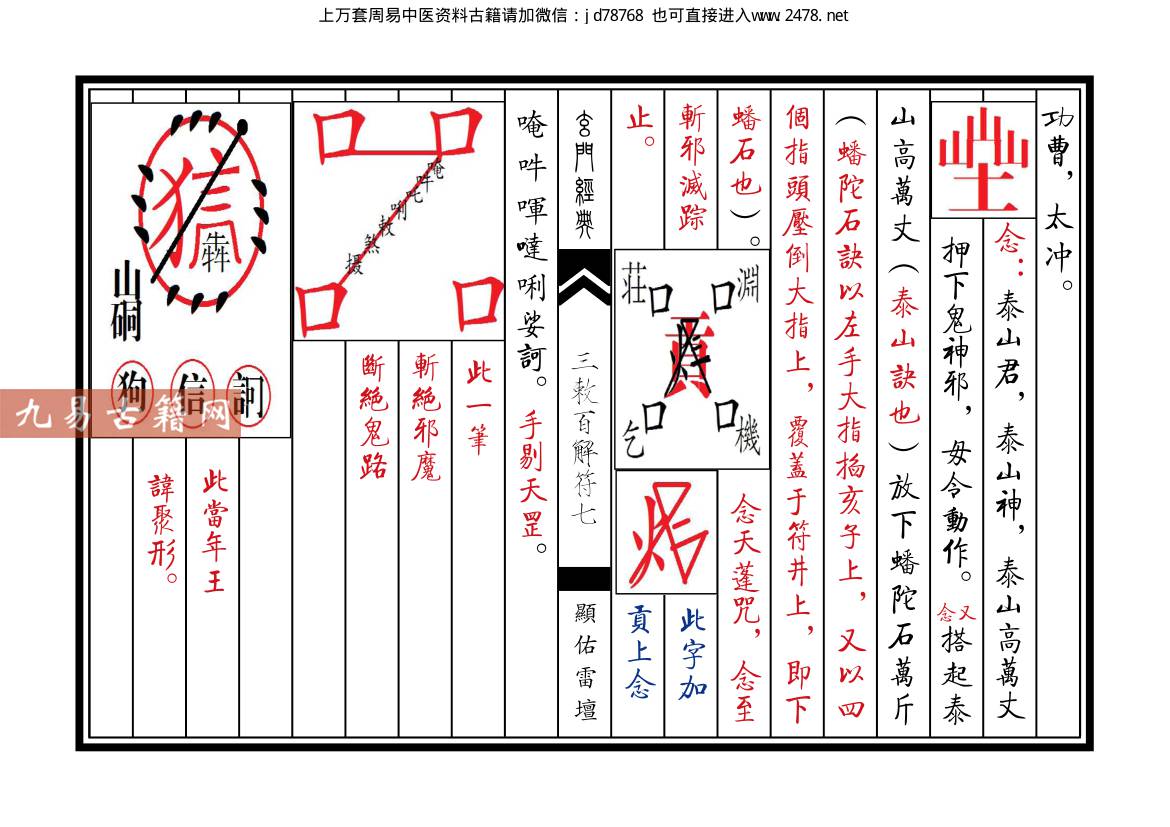 上万套周易中医资料古籍请加微信：jd78768 也可直接进入www.2478.net
功曹，太冲。
念：泰山君，泰山神，泰山高萬丈
押下鬼神邪，毋令動作。又念搭起泰
山高萬丈（泰山訣也）放下蟠陀石萬斤
（蟠陀石訣以左手大指掐亥子上，又以四
個指頭壓倒大指上，覆蓋于符井上，即下
蟠石也）。
念天蓬咒，念至
斬邪滅踪
止。
淵
莊
口
口
貢
口
口
機
乞
此字加
貢上念
玄門經典
三敕百解符七
顯佑雷壇
唵吽㖶噠唎娑訶。手剔天罡。
口
口
唵吽吒唎敕煞摄
口
口
此一筆
斬絕邪魔
斷絕鬼路
山
硐
狗
信
訶
此當年王
諱聚形。
九易古籍网